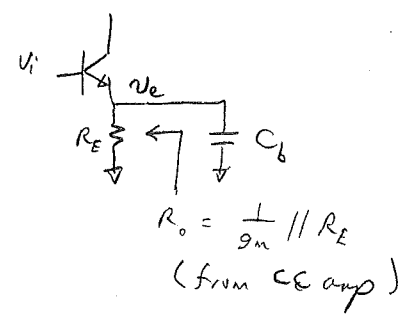 Vi
Ve
RE
Cb
Ro = 1/gm // RE
(from CE amp)